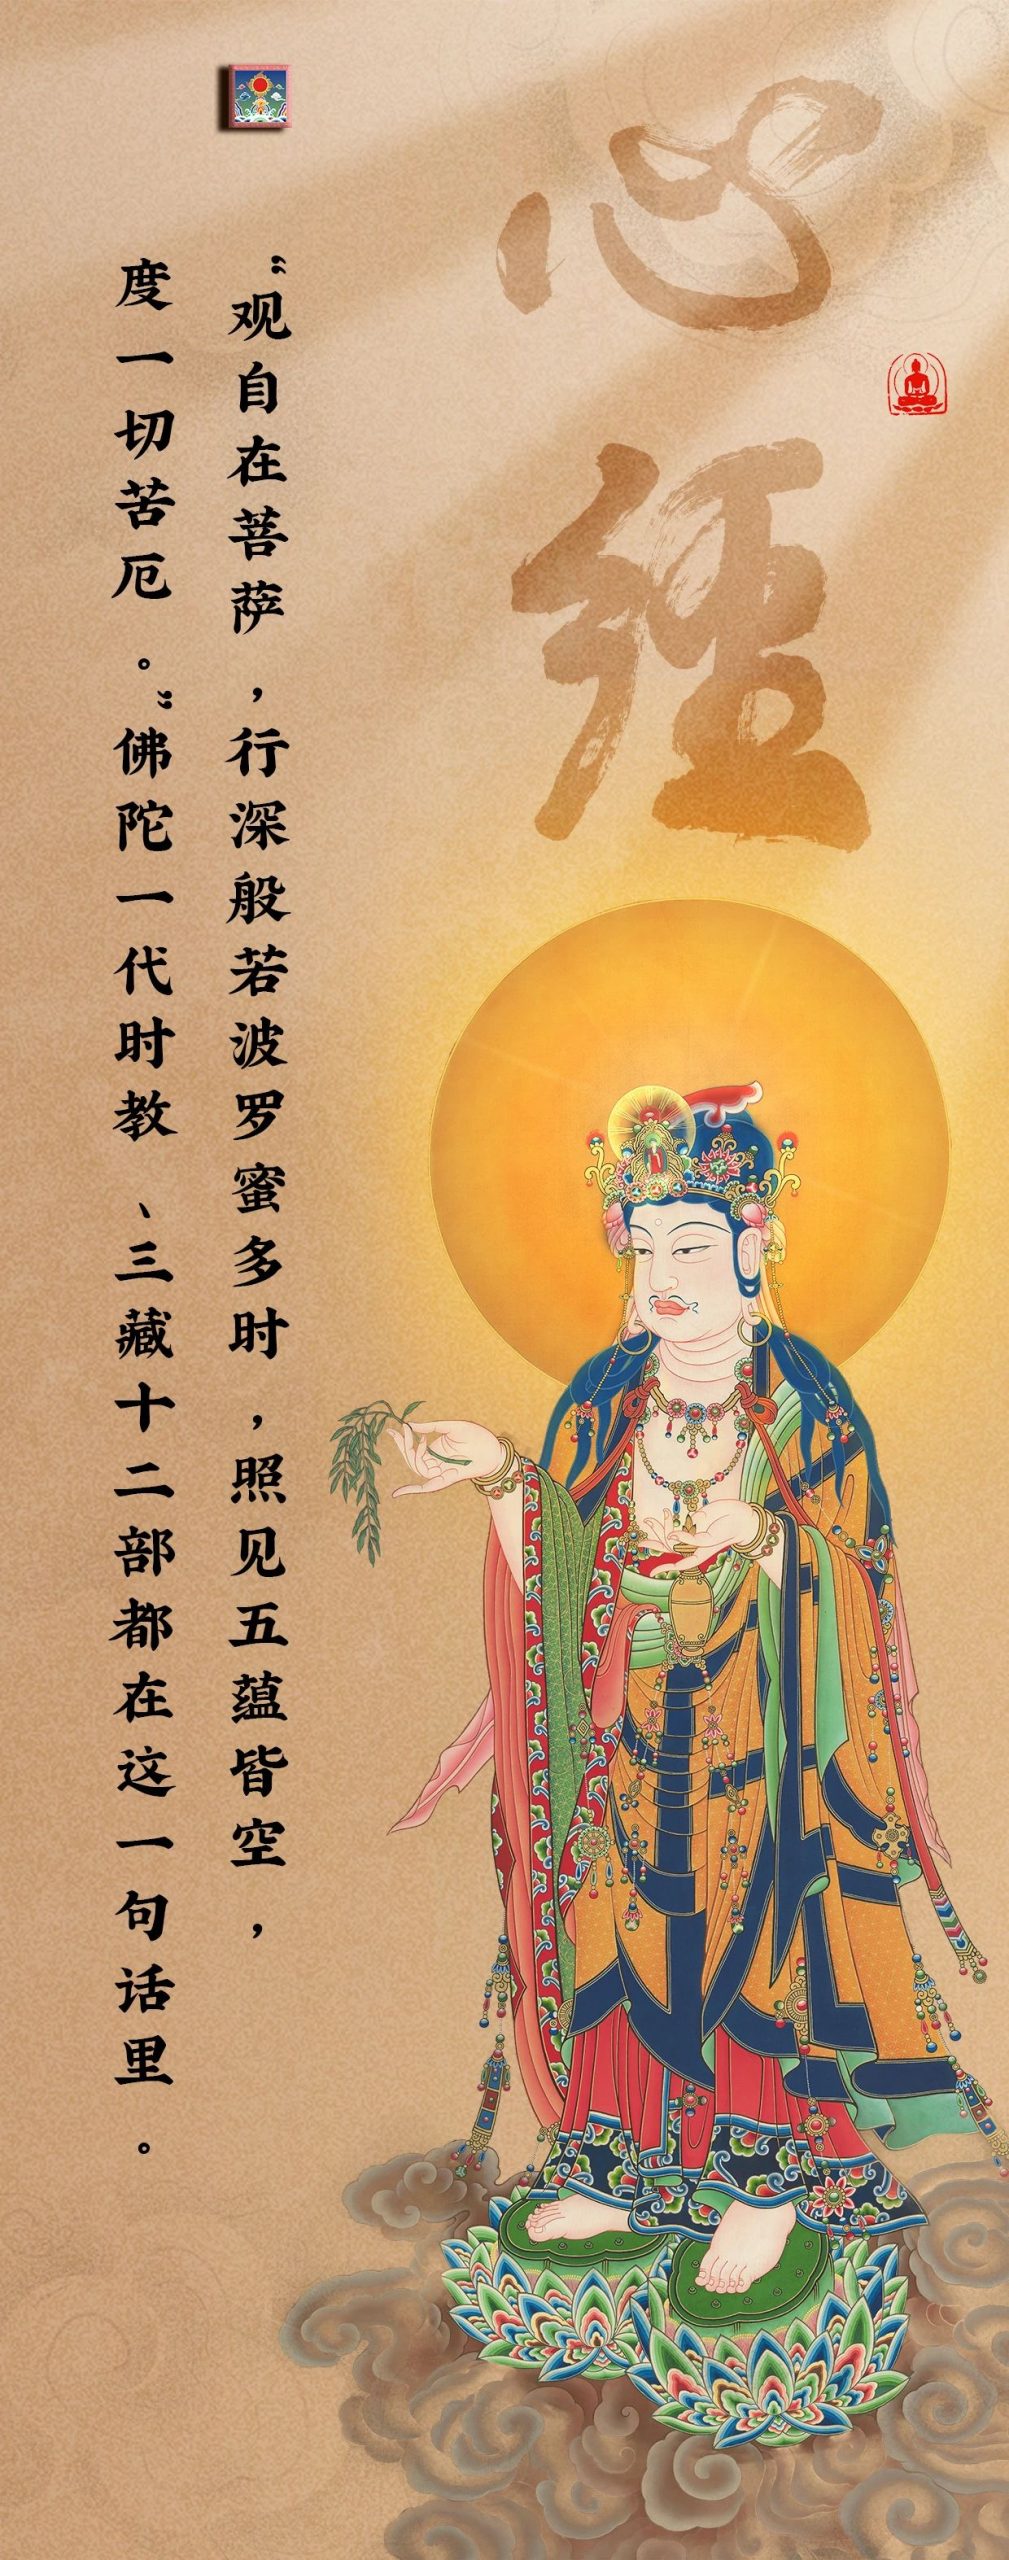 心经
“观自在菩萨，行深般若波罗蜜多时，照见五蕴皆空，
度一切苦厄。”佛陀一代时教、三藏十二部都在这一句话里。